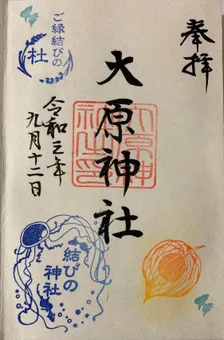 奉拝
大原神社
令和三年
九月十二日
ご縁結びの
社
結びの
神社